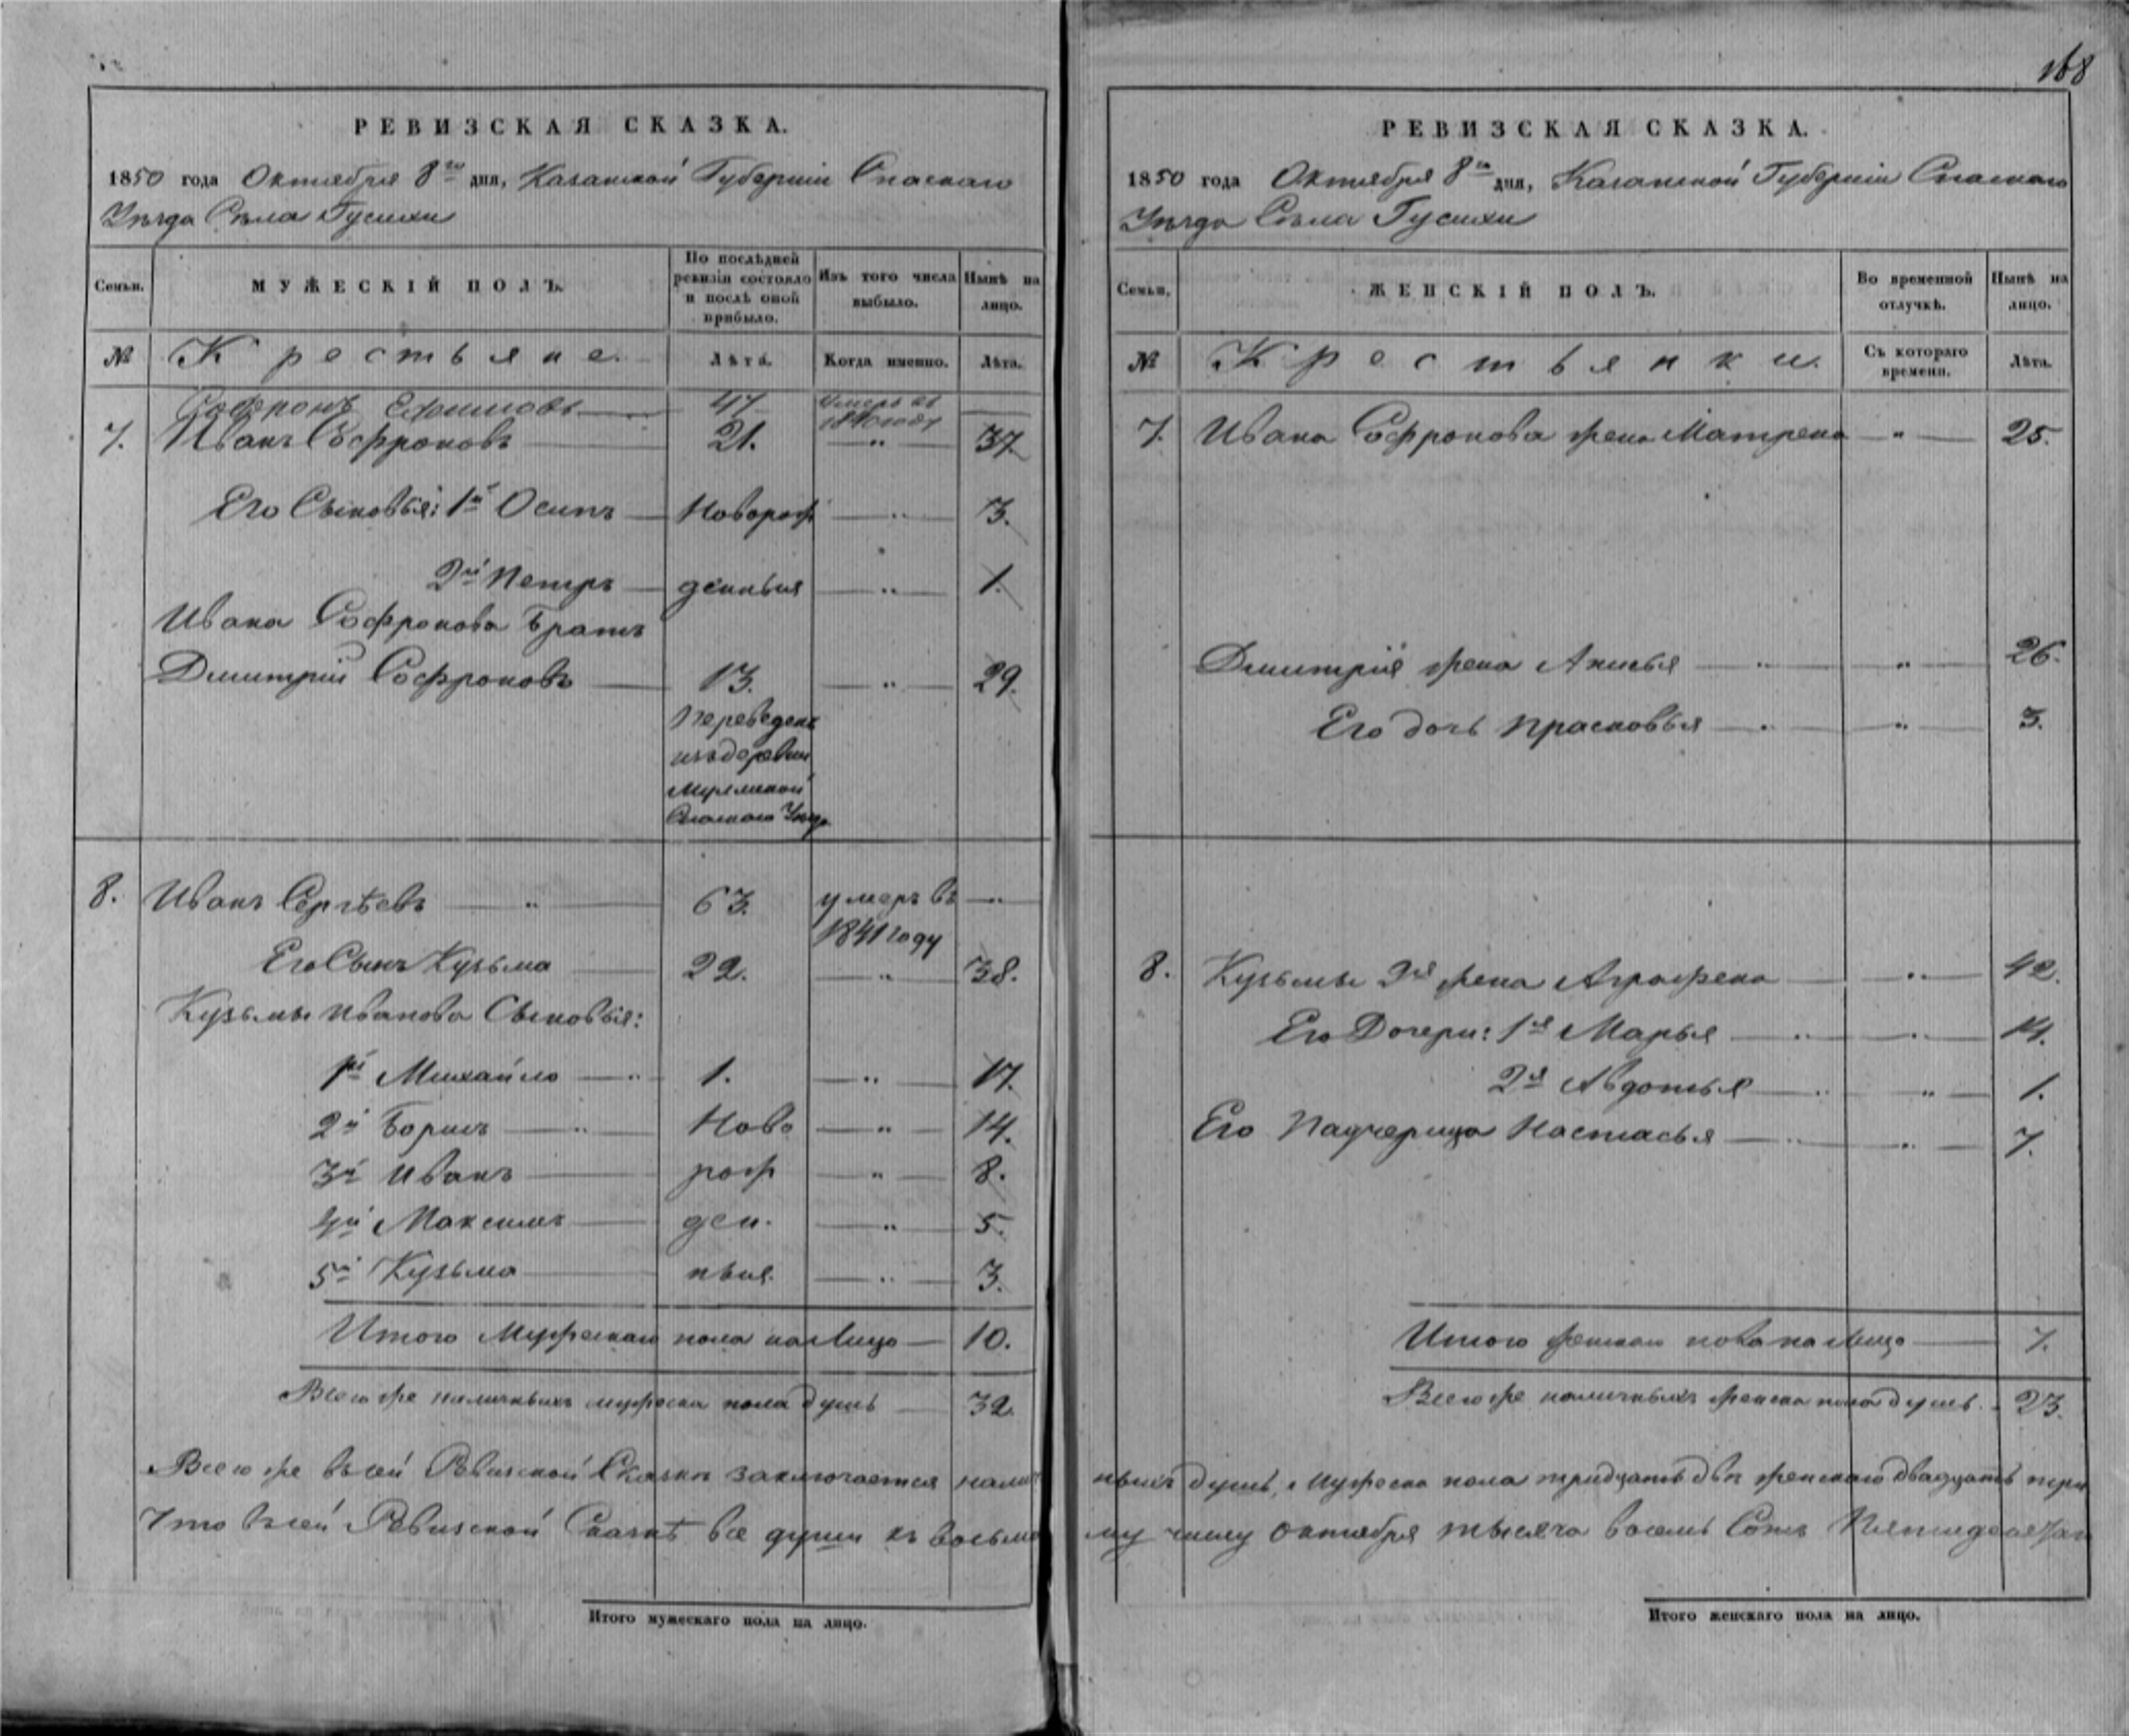 РЕВИЗСКАЯ СКАЗКА.
1850 года Октября 8го дня, Казанской Губерніи Спаскаго
Уѣзда Села Гусихи
Семьи. МУЖЕСКІЙ ПОЛЪ. По послѣдней ревизіи состояло и послѣ оной прибыло. Изъ того числа выбыло. Нынѣ на лицо.
№ Крестьяне. Лѣта. Когда именно. Лѣта.
Софронъ Ефимовъ 47 умеръ въ 1840 году
7. Иванъ Софроновъ 21. " 37.
Его Сыновья: 1й Осипъ Новорож " 3.
2й Петръ денныя " 1.
Ивана Софронова Братъ
Дмитрій Софроновъ 13. " 29.
Переведенъ
изъ деревни
Спаскаго Уѣзда
8. Иванъ Сергѣевъ " 63. умеръ въ "
1841 году
Его Сынъ Кузьма 22. " 38.
Кузьмы Иванова Сыновья:
1й Михайло " 1. " 17.
2й Борисъ " Ново " 14.
3й Иванъ рож " 8.
4й Максимъ ден. " 5.
5й Кузьма ныя. " 3.
Итого Мужескаго пола на Лицо 10.
Всего же наличныхъ мужеска пола душъ 32.
Всего же въ сей Ревизской Сказкѣ заключается налич
Что въ сей Ревизской Сказкѣ все души къ восьмо
Итого мужескаго пола на лицо.
168
РЕВИЗСКАЯ СКАЗКА.
1850 года Октября 8го дня, Казанской Губерніи Спаскаго
Уѣзда Села Гусихи
Семьи. ЖЕНСКІЙ ПОЛЪ. Во временной отлучкѣ. Нынѣ на лицо.
№ Крестьянки. Съ котораго времени. Лѣта.
7. Ивана Софронова жена Матрена " 25.
Дмитрія жена Анисья " " 26.
Его дочь Прасковья " " 3.
8. Кузьмы 2я жена Аграфена " 42.
Его Дочери: 1я Марья " " 14.
2я Авдотья " " 1.
Его Падчерица Настасья " " 7.
Итого женскаго пола на Лицо 7.
Всего же наличныхъ женска пола душъ. 23.
ныхъ душъ, Мужеска пола тридцать двѣ женскаго двадцать три
му числу Октября тысяча восемь Сотъ Пятидесятаго
Итого женскаго пола на лицо.